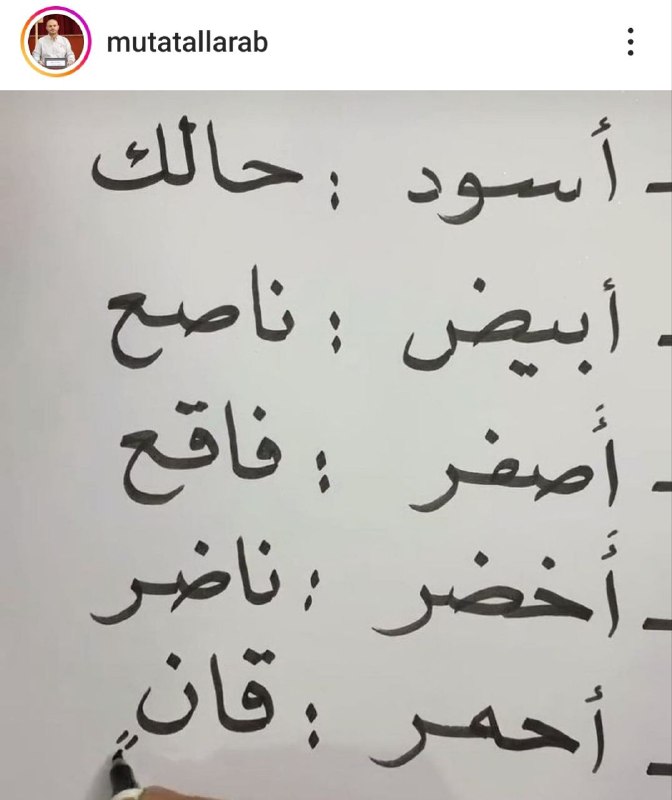 mutatallarab
- أسود : حالك
- أبيض : ناصع
- أَصفر : فاقع
- أَخضر : ناضر
- أحمر : قانٍ